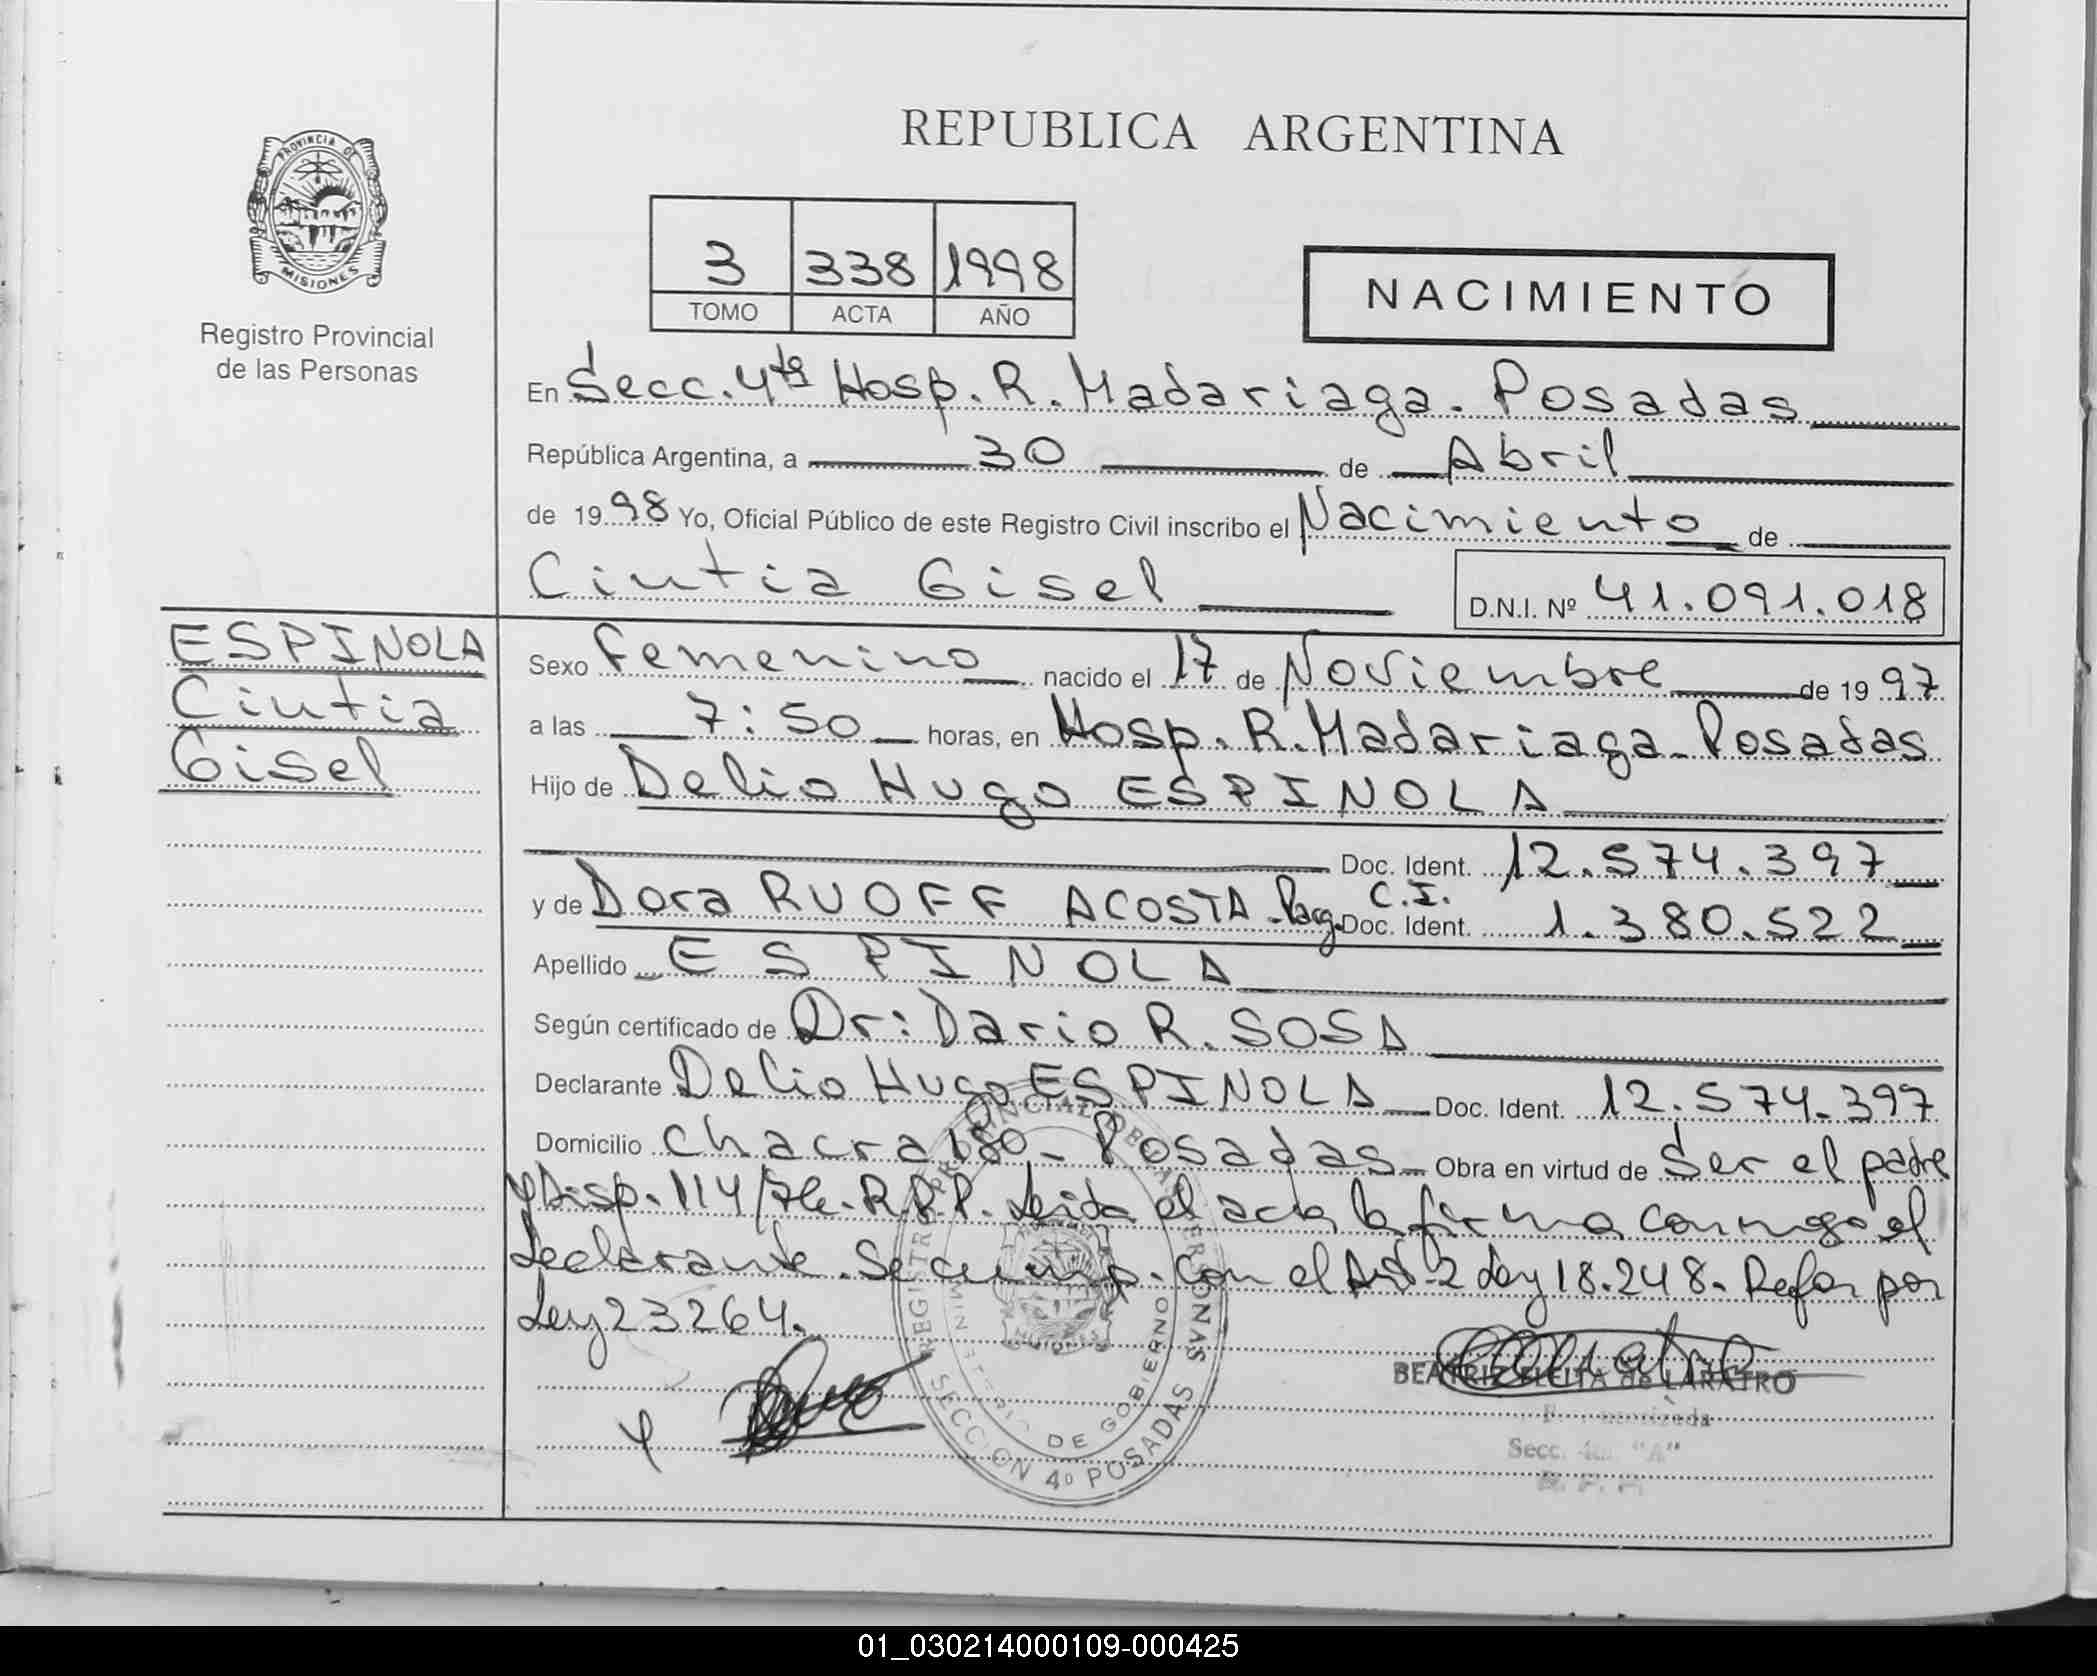 REPUBLICA ARGENTINA
PROVINCIA DE
MISIONES
Registro Provincial
de las Personas
3 338 1998
TOMO ACTA AÑO
NACIMIENTO
En Secc. 4ta Hosp. R. Madariaga. Posadas
República Argentina, a 30 de Abril
de 1998 Yo, Oficial Público de este Registro Civil inscribo el Nacimiento de
Cintia Gisel D.N.I. Nº 41.091.018
ESPINOLA
Cintia
Gisel
Sexo Femenino nacido el 17 de Noviembre de 1997
a las 7:50 horas, en Hosp. R. Madariaga - Posadas
Hijo de Delio Hugo ESPINOLA
Doc. Ident. 12.574.397
y de Dora RUOFF ACOSTA - Parag. C.I. Doc. Ident. 1.380.522
Apellido ESPINOLA
Según certificado de Dr: Dario R. SOSA
Declarante Delio Hugo ESPINOLA Doc. Ident. 12.574.397
Domicilio Chacra 180 - Posadas Obra en virtud de Ser el padre
y Disp. 114/ R.P.P. Leida el acta la firma conmigo el
declarante. Se cump. con el Art. 2 Ley 18.248. Refor por
Ley 23264.
BEATRIZ FLEITA de LARATRO
Secc. 4ta. "A"
REGISTRO PROVINCIAL DE LAS PERSONAS
MINISTERIO DE GOBIERNO
SECCION 4º POSADAS
01_030214000109-000425